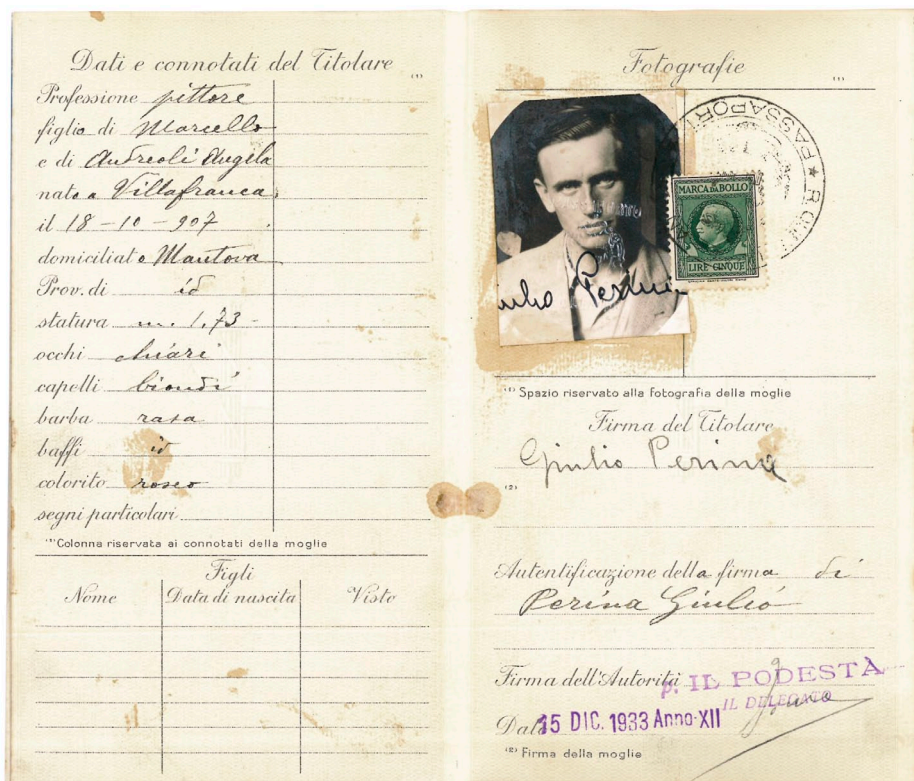 Dati e connotati del Titolare (1)
Professione pittore
figlio di Marcello
e di Andreoli Angela
nato a Villafranca
il 18-10-907
domiciliato Mantova
Prov. di id
statura m. 1,73-
occhi chiari
capelli biondi
barba rasa
baffi id
colorito roseo
segni particolari
(1) Colonna riservata ai connotati della moglie
Figli
Nome Data di nascita Visto
Fotografie (1)
PASSAPORT
MARCA DA BOLLO
LIRE CINQUE
(1) Spazio riservato alla fotografia della moglie
Firma del Titolare
Giulio Perina
(2)
Autentificazione della firma di
Perina Giulio
Firma dell'Autorità p. IL PODESTÀ
IL DELEGATO
Data 15 DIC. 1933 Anno XII
(2) Firma della moglie